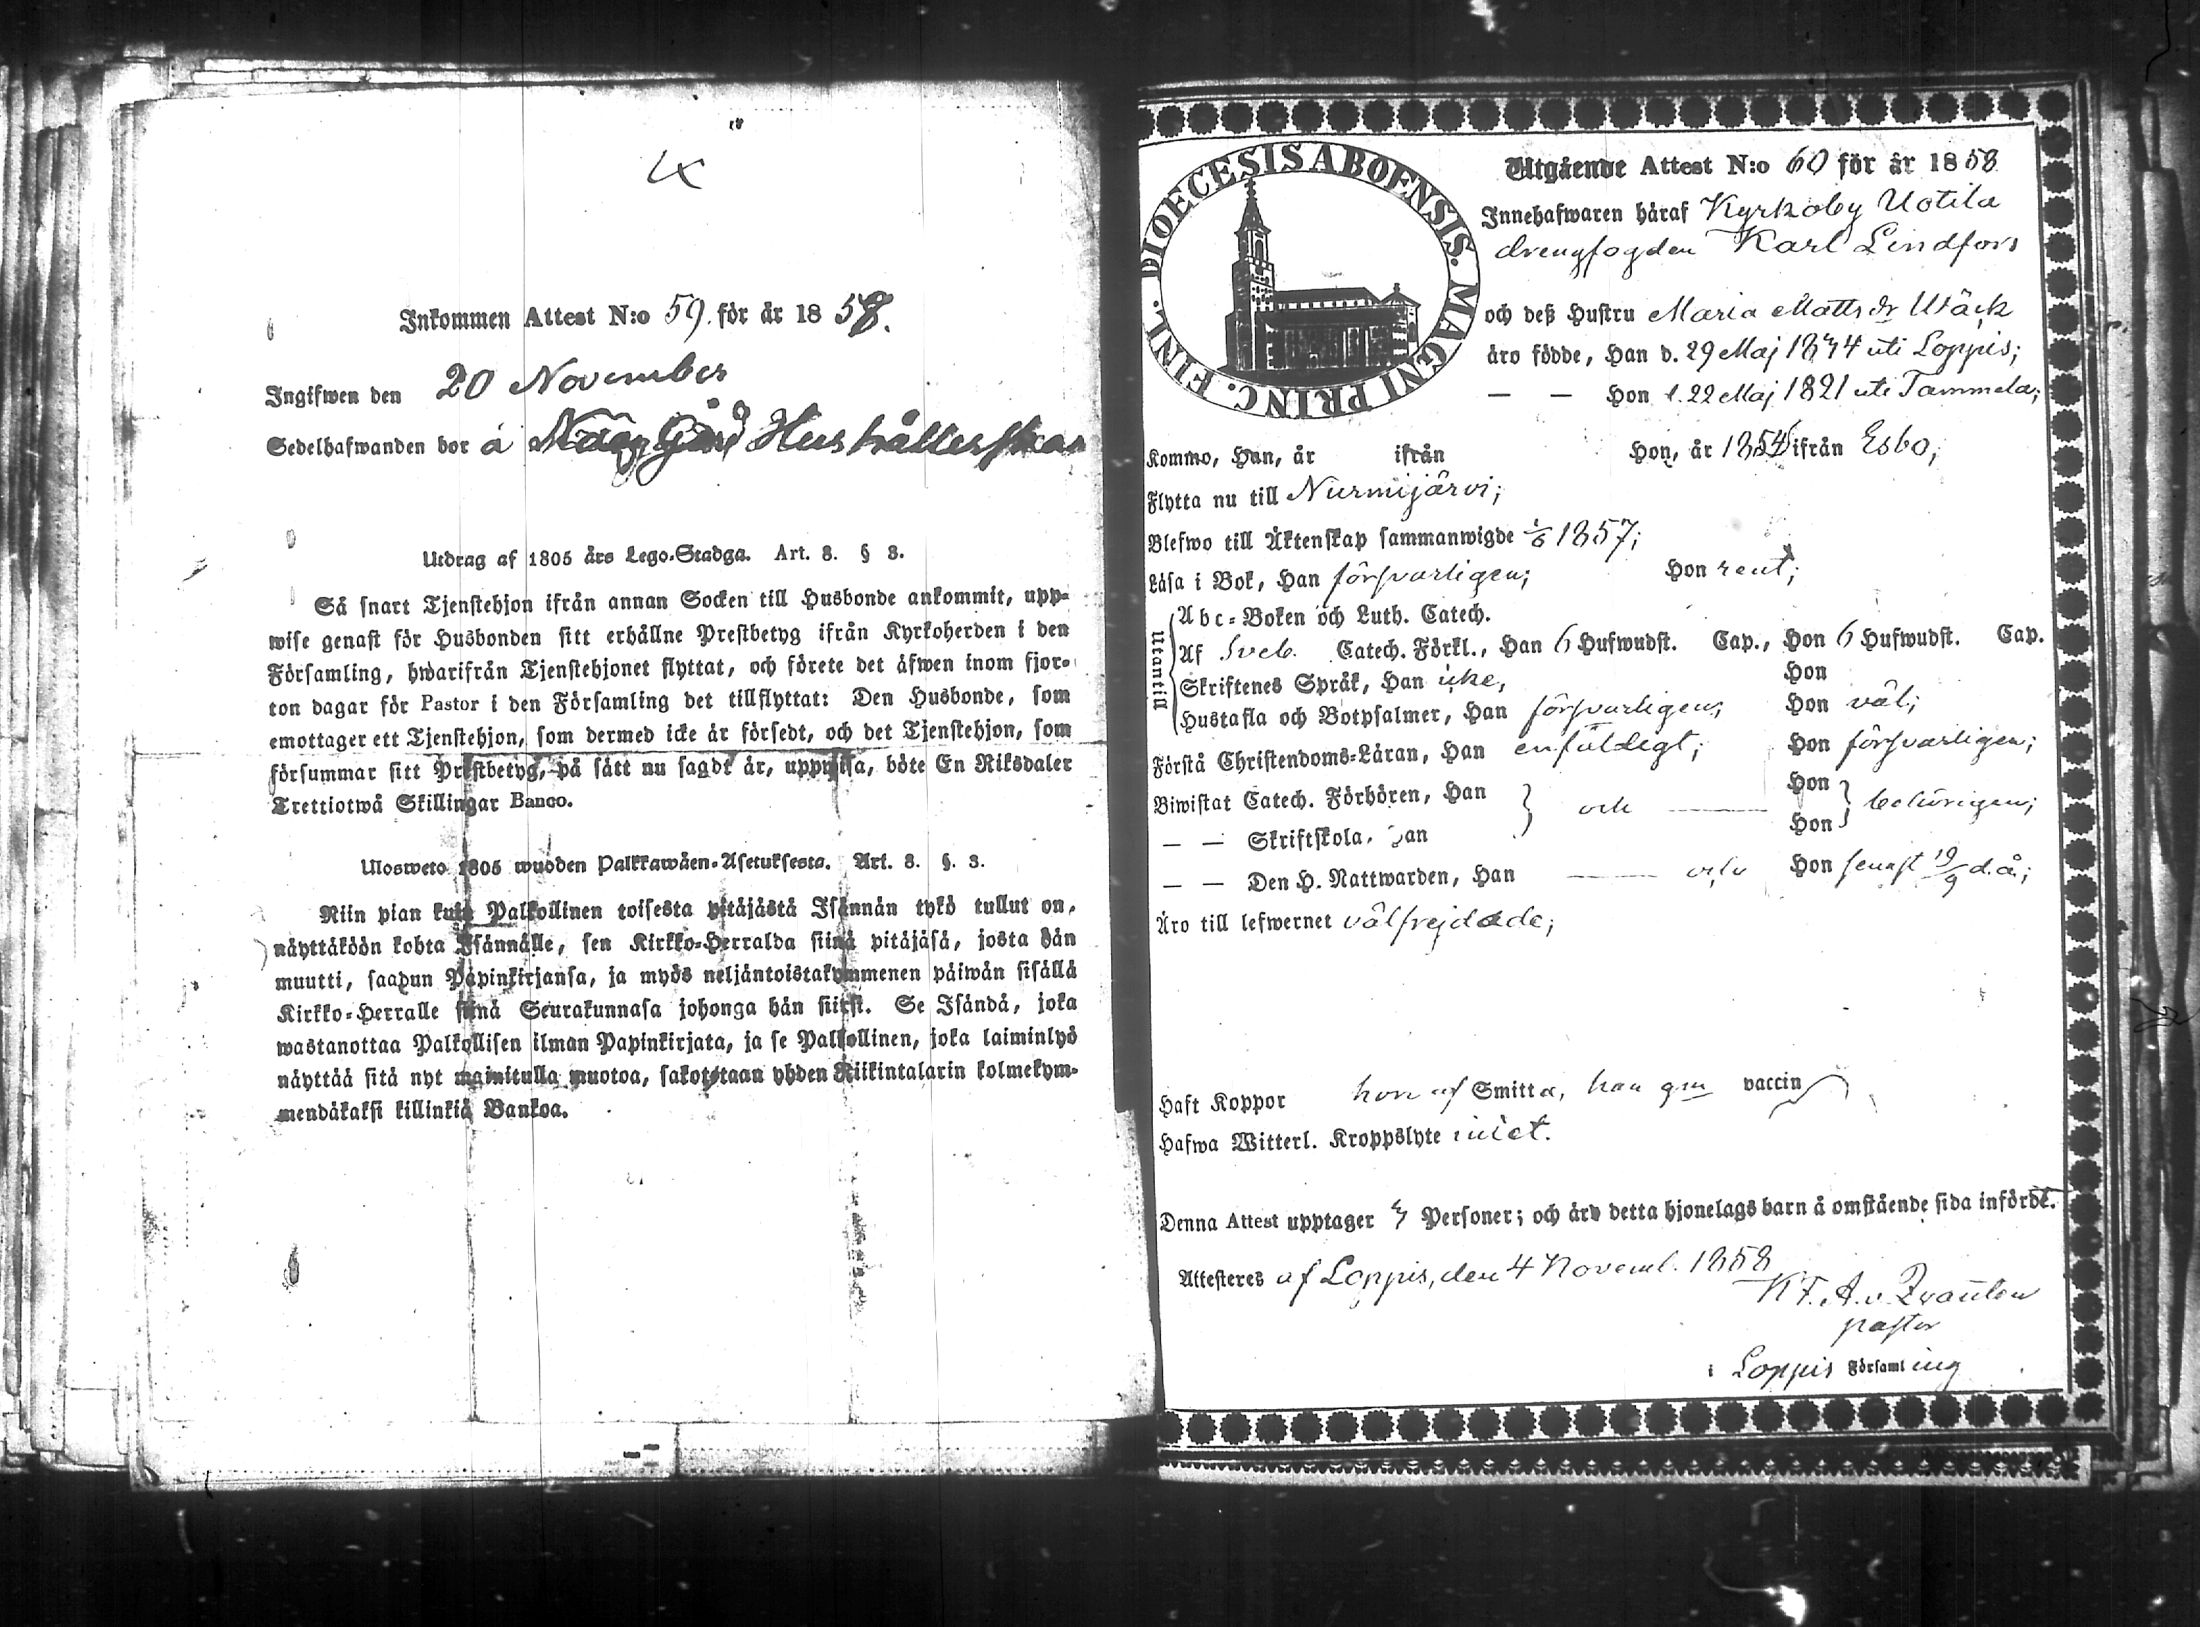 Inkommen Attest N:o 59. för år 1858.
Ingifwen den 20 November
Sedelhafwanden bor å Gård Hushållerskan
Utdrag af 1805 års Lego-Stadga. Art. 3. § 3.
Så snart Tjenstehjon ifrån annan Socken till Husbonde ankommit, upp-
wise genast för Husbonden sitt erhållne Prestbetyg ifrån Kyrkoherden i den
Församling, hwarifrån Tjenstehjonet flyttat, och förete det äfwen inom fjor-
ton dagar för Pastor i den Församling det tillflyttat: Den Husbonde, som
emottager ett Tjenstehjon, som dermed icke är försedt, och det Tjenstehjon, som
försummar sitt Prestbetyg, på sätt nu sagdt är, uppwisa, böte En Riksdaler
Trettiotwå Skillingar Banco.
Ulosweto 1805 wuoden Palkkawäen-Asetuksesta. Art. 3. §. 3.
Niin pian kuin Palkollinen toisesta pitäjästä Isännän tykö tullut on,
näyttäköön kohta Isännälle, sen Kirkko-Herralda siinä pitäjäsä, josta hän
muutti, saadun Papinkirjansa, ja myös neljäntoistakymmenen päiwän sisällä
Kirkko-Herralle siinä Seurakunnasa johonga hän siirsi. Se Isändä, joka
wastanottaa Palkollisen ilman Papinkirjata, ja se Palkollinen, joka laiminlyö
näyttää sitä nyt mainitulla muotoa, sakotetaan yhden Riikintalarin kolmekym-
mendäkaksi killinkiä Bankoa.
DIOECESIS ABOENSIS. MAGNI PRINC. FINL.
Utgående Attest N:o 60 för år 1858
Innehafwaren häraf Kyrkoby Uotila
drengfogden Karl Lindfors
och deß Hustru Maria Mattsdr
äro födde, Han d. 29 Maj uti Loppis;
— — Hon d. 22 Maj 1821 uti Tammela;
Kommo, Han, år ifrån Hon, år ifrån Esbo;
Flytta nu till Nurmijärvi;
Blefwo till Äktenskap sammanwigde 1857;
Läsa i Bok, Han försvarligen; Hon rent;
Utantill
Abc-Boken och Luth. Catech.
Af Sveb. Catech. Förkl., Han 6 Hufwudst. Cap., Hon 6 Hufwudst. Cap.
Skriftenes Språk, Han icke, Hon
Hustafla och Botpsalmer, Han försvarligen; Hon väl;
Förstå Christendoms-Läran, Han enfaldigt; Hon försvarligen;
Biwistat Catech. Förhören, Han och Hon behörigen;
— — Skriftskola, Han Hon
— — Den H. Nattwarden, Han och Hon senast 19/9 d. å;
Äro till lefwernet välfrejdade;
Haft Koppor hon af Smitta, han gm vaccin
Hafwa Witterl. Kroppslyte intet.
Denna Attest upptager Personer; och äro detta hjonelags barn å omstående sida införde.
Attesteres af Loppis, den 4 Novemb. 1858
pastor
i Loppis Församling